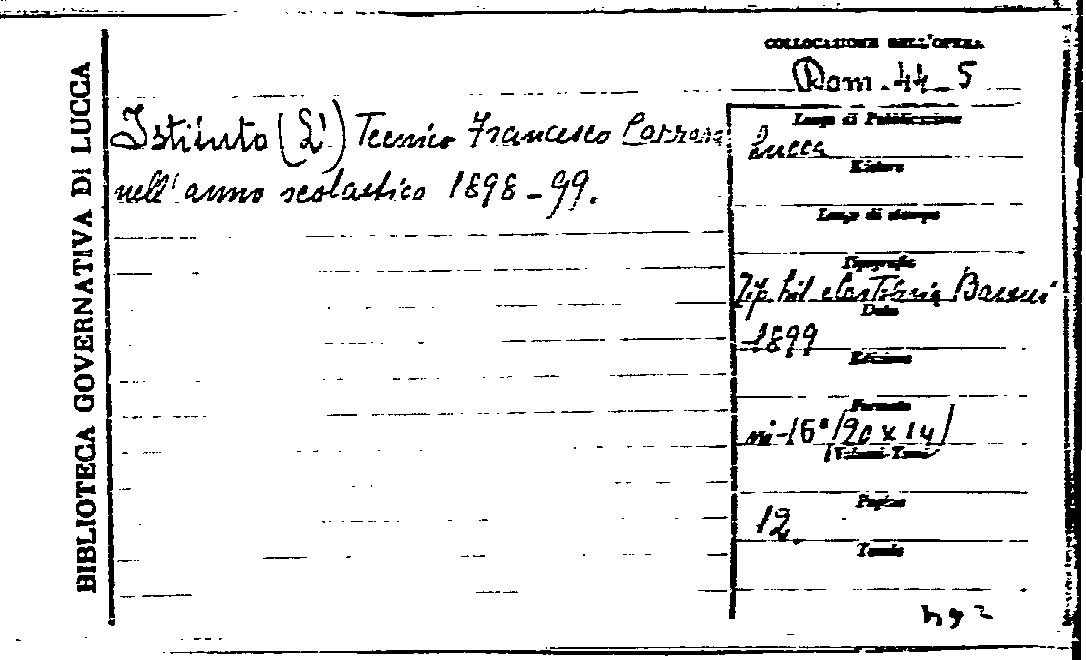 BIBLIOTECA GOVERNATIVA DI LUCCA
COLLOCAZIONE DELL'OPERA
Dom. 44-5
Istituto (L') Tecnico Francesco Carrara
nell'anno scolastico 1898-99.
Luogo di Pubblicazione
Lucca
Editore
Luogo di stampa
Tipografia
Tip. Baroni
Data
1899
Edizione
Formato
in-16° (20 x 14)
Volumi-Tomi
Pagine
12.
Tavole